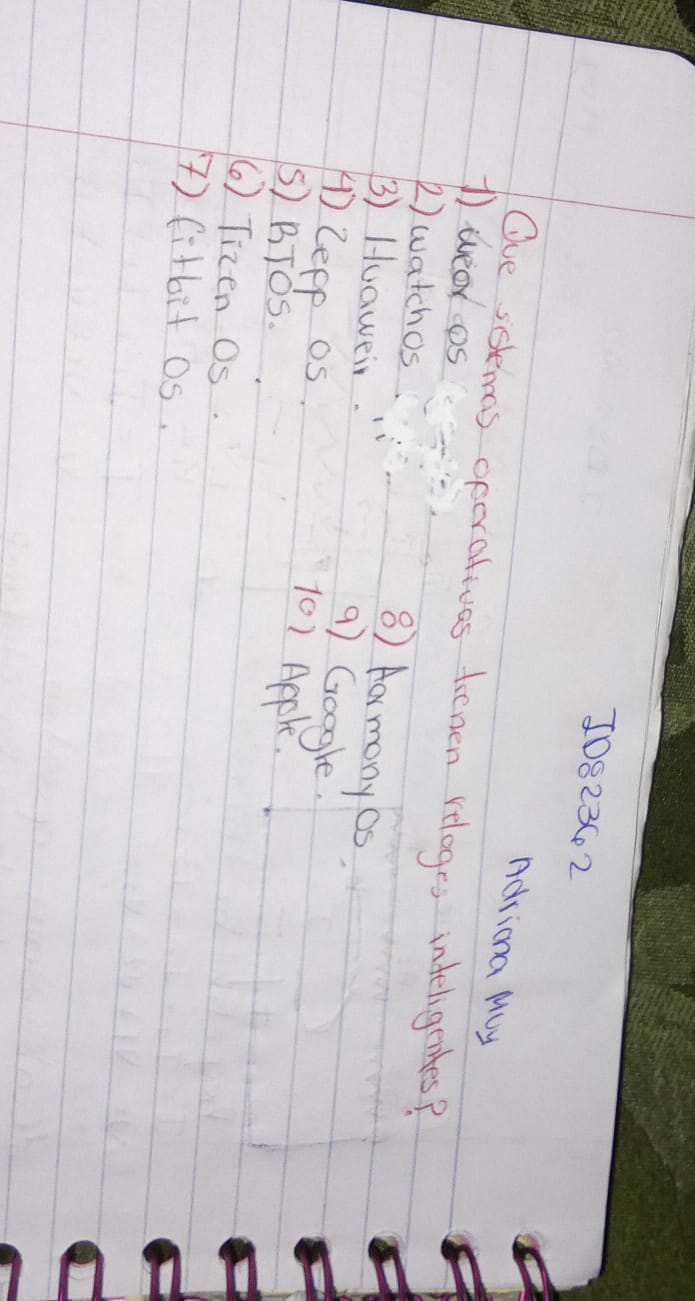 ID82362
Adriana Muy
Que sistemas operativos tienen reloges inteligentes?
1) wear os
2) watch os
3) Huawein.
4) Zepp os.
5) RTOS.
6) Tizen Os.
7) fitbit Os.
8) Aarmony Os.
9) Google.
10) Apple.